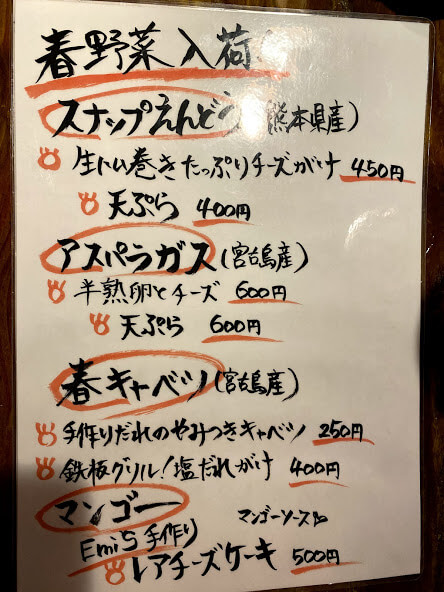 春野菜入荷!
スナップえんどう(熊本県産)
生ハム巻きたっぷりチーズがけ 450円
天ぷら 400円
アスパラガス(宮古島産)
半熟卵とチーズ 600円
天ぷら 600円
春キャベツ(宮古島産)
手作りだれのやみつきキャベツ 250円
鉄板グリル!塩だれがけ 400円
マンゴー マンゴーソース
Emiら手作り
レアチーズケーキ 500円